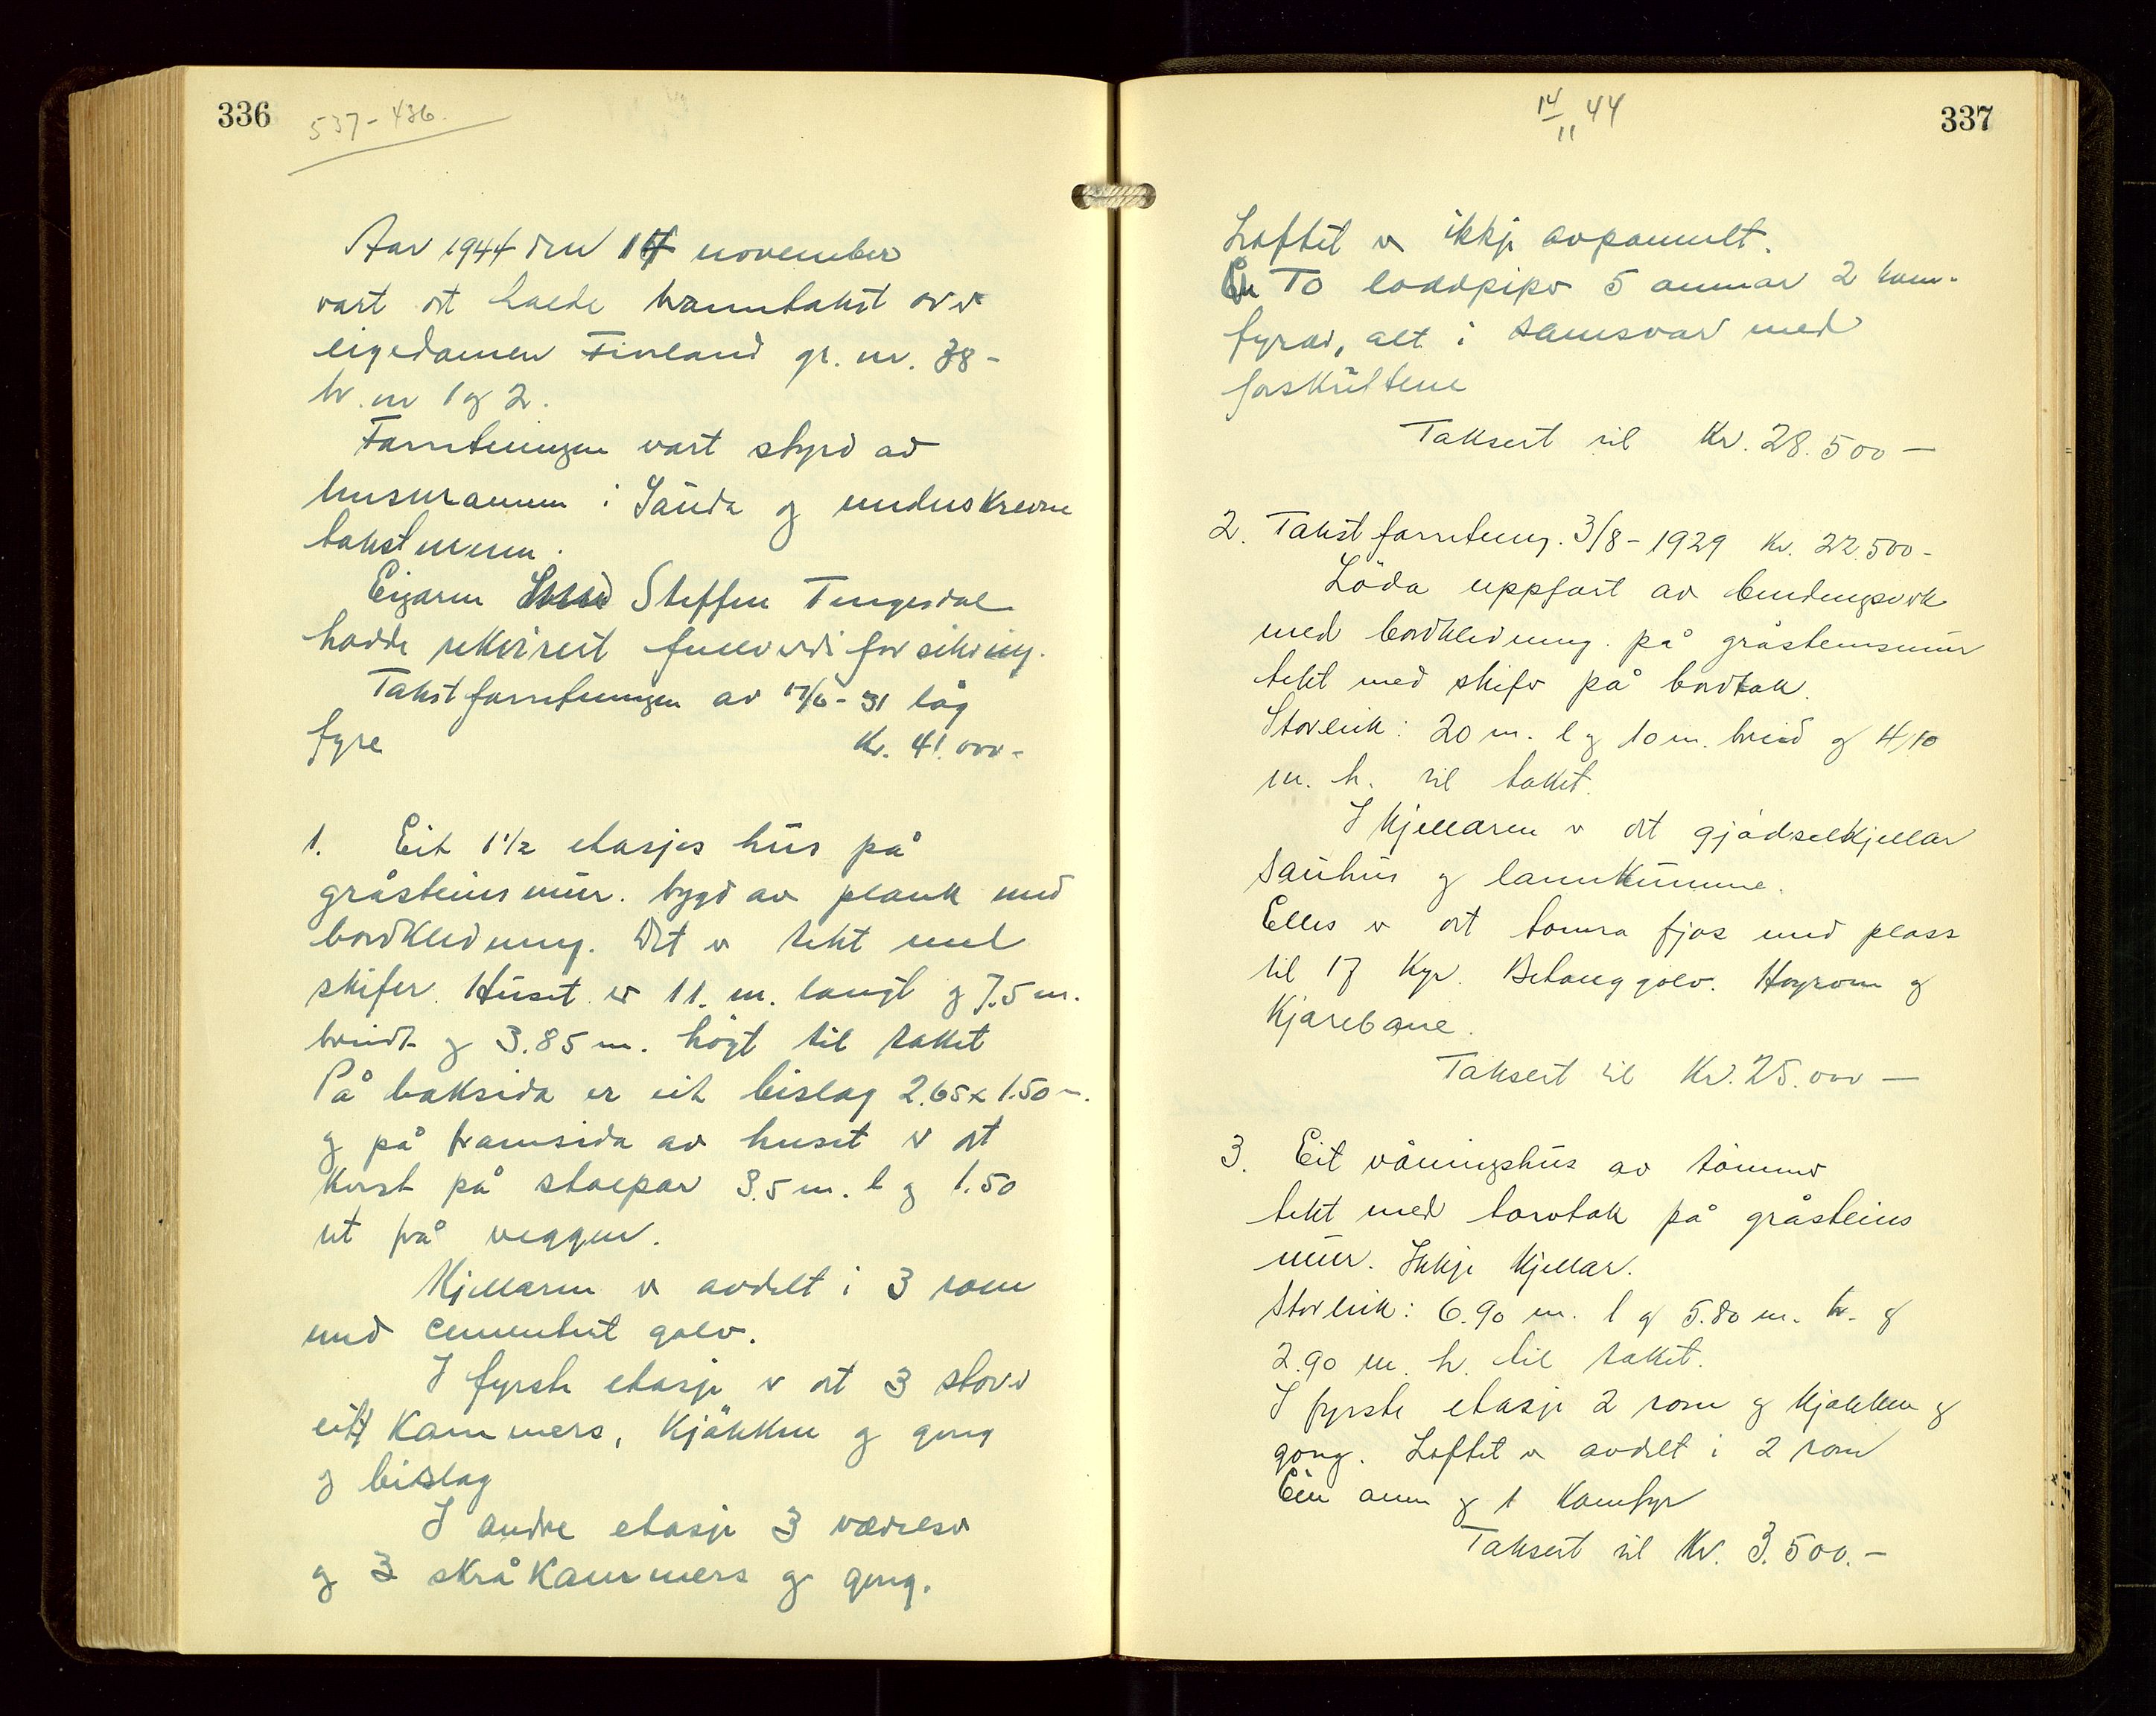 336
537-436.
Aar 1944 den 14 november
vart det halde branntakst over
eigedomen Finland gr. nr. 38 -
br. nr 1 og 2.
Forretningen vart styrd av
lensmannen i Sauda og underskrevne
takstmenn.
Eigaren Steffen Tengesdal
hadde rekvirert fullverdiforsikring.
Takstforretningen av 17/6 - 31 låg
fyre Kr. 41.000 -
1. Eit 1 1/2 etasjes hus på
gråsteinsmur. bygd av plank med
bordkledning. Det er tekt med
skifer. Huset er 11. m. langt og 7.5 m.
breidt og 3.85 m. högt til taket
På baksida er eit bislag 2.65 x 1.50 m.
og på framsida av huset er det
kvist på stolpar 3.5 m. l og 1.50
ut frå veggen.
Kjellaren er avdelt i 3 rom
med cementert golv.
I fyrste etasje er det 3 stover
eitt kammers, kjökken og gong
og bislag
I andre etasje 3 værelser
og 3 skråkammers og gong.
14/11 44
337
Loftet er ikkje avpanmelt.
To loddpiper 5 omnar 2 kom-
fyrar, alt i samsvar med
forskriftene
Taksert til Kr. 28.500 —
2. Takstforretning. 3/8 - 1929 Kr. 22.500 -
Löda uppfört av bindingsverk
med bordkledning. på gråsteinsmur
tekt med skifer på bordtak.
Storleik: 20 m. l og 10 m. breid og 4,10
m. h. til taket.
I kjellaren er det gjödselkjellar
sauhus og lannkumme.
Elles er det tomra fjos med plass
til 17 kyr. Betonggolv. Höyrom og
kjørebane.
Taksert til Kr. 25.000 —
3. Eit våningshus av tömmer
tekt med torvtak på gråsteins
mur. Ikkje kjellar.
Storleik: 6.90 m. l og 5.80 m. br. og
2.90 m. h. til taket.
I fyrste etasje 2 rom og kjøkken og
gong. Loftet er avdelt i 2 rom
Ein omn og 1 komfyr
Taksert til Kr. 3.500. —